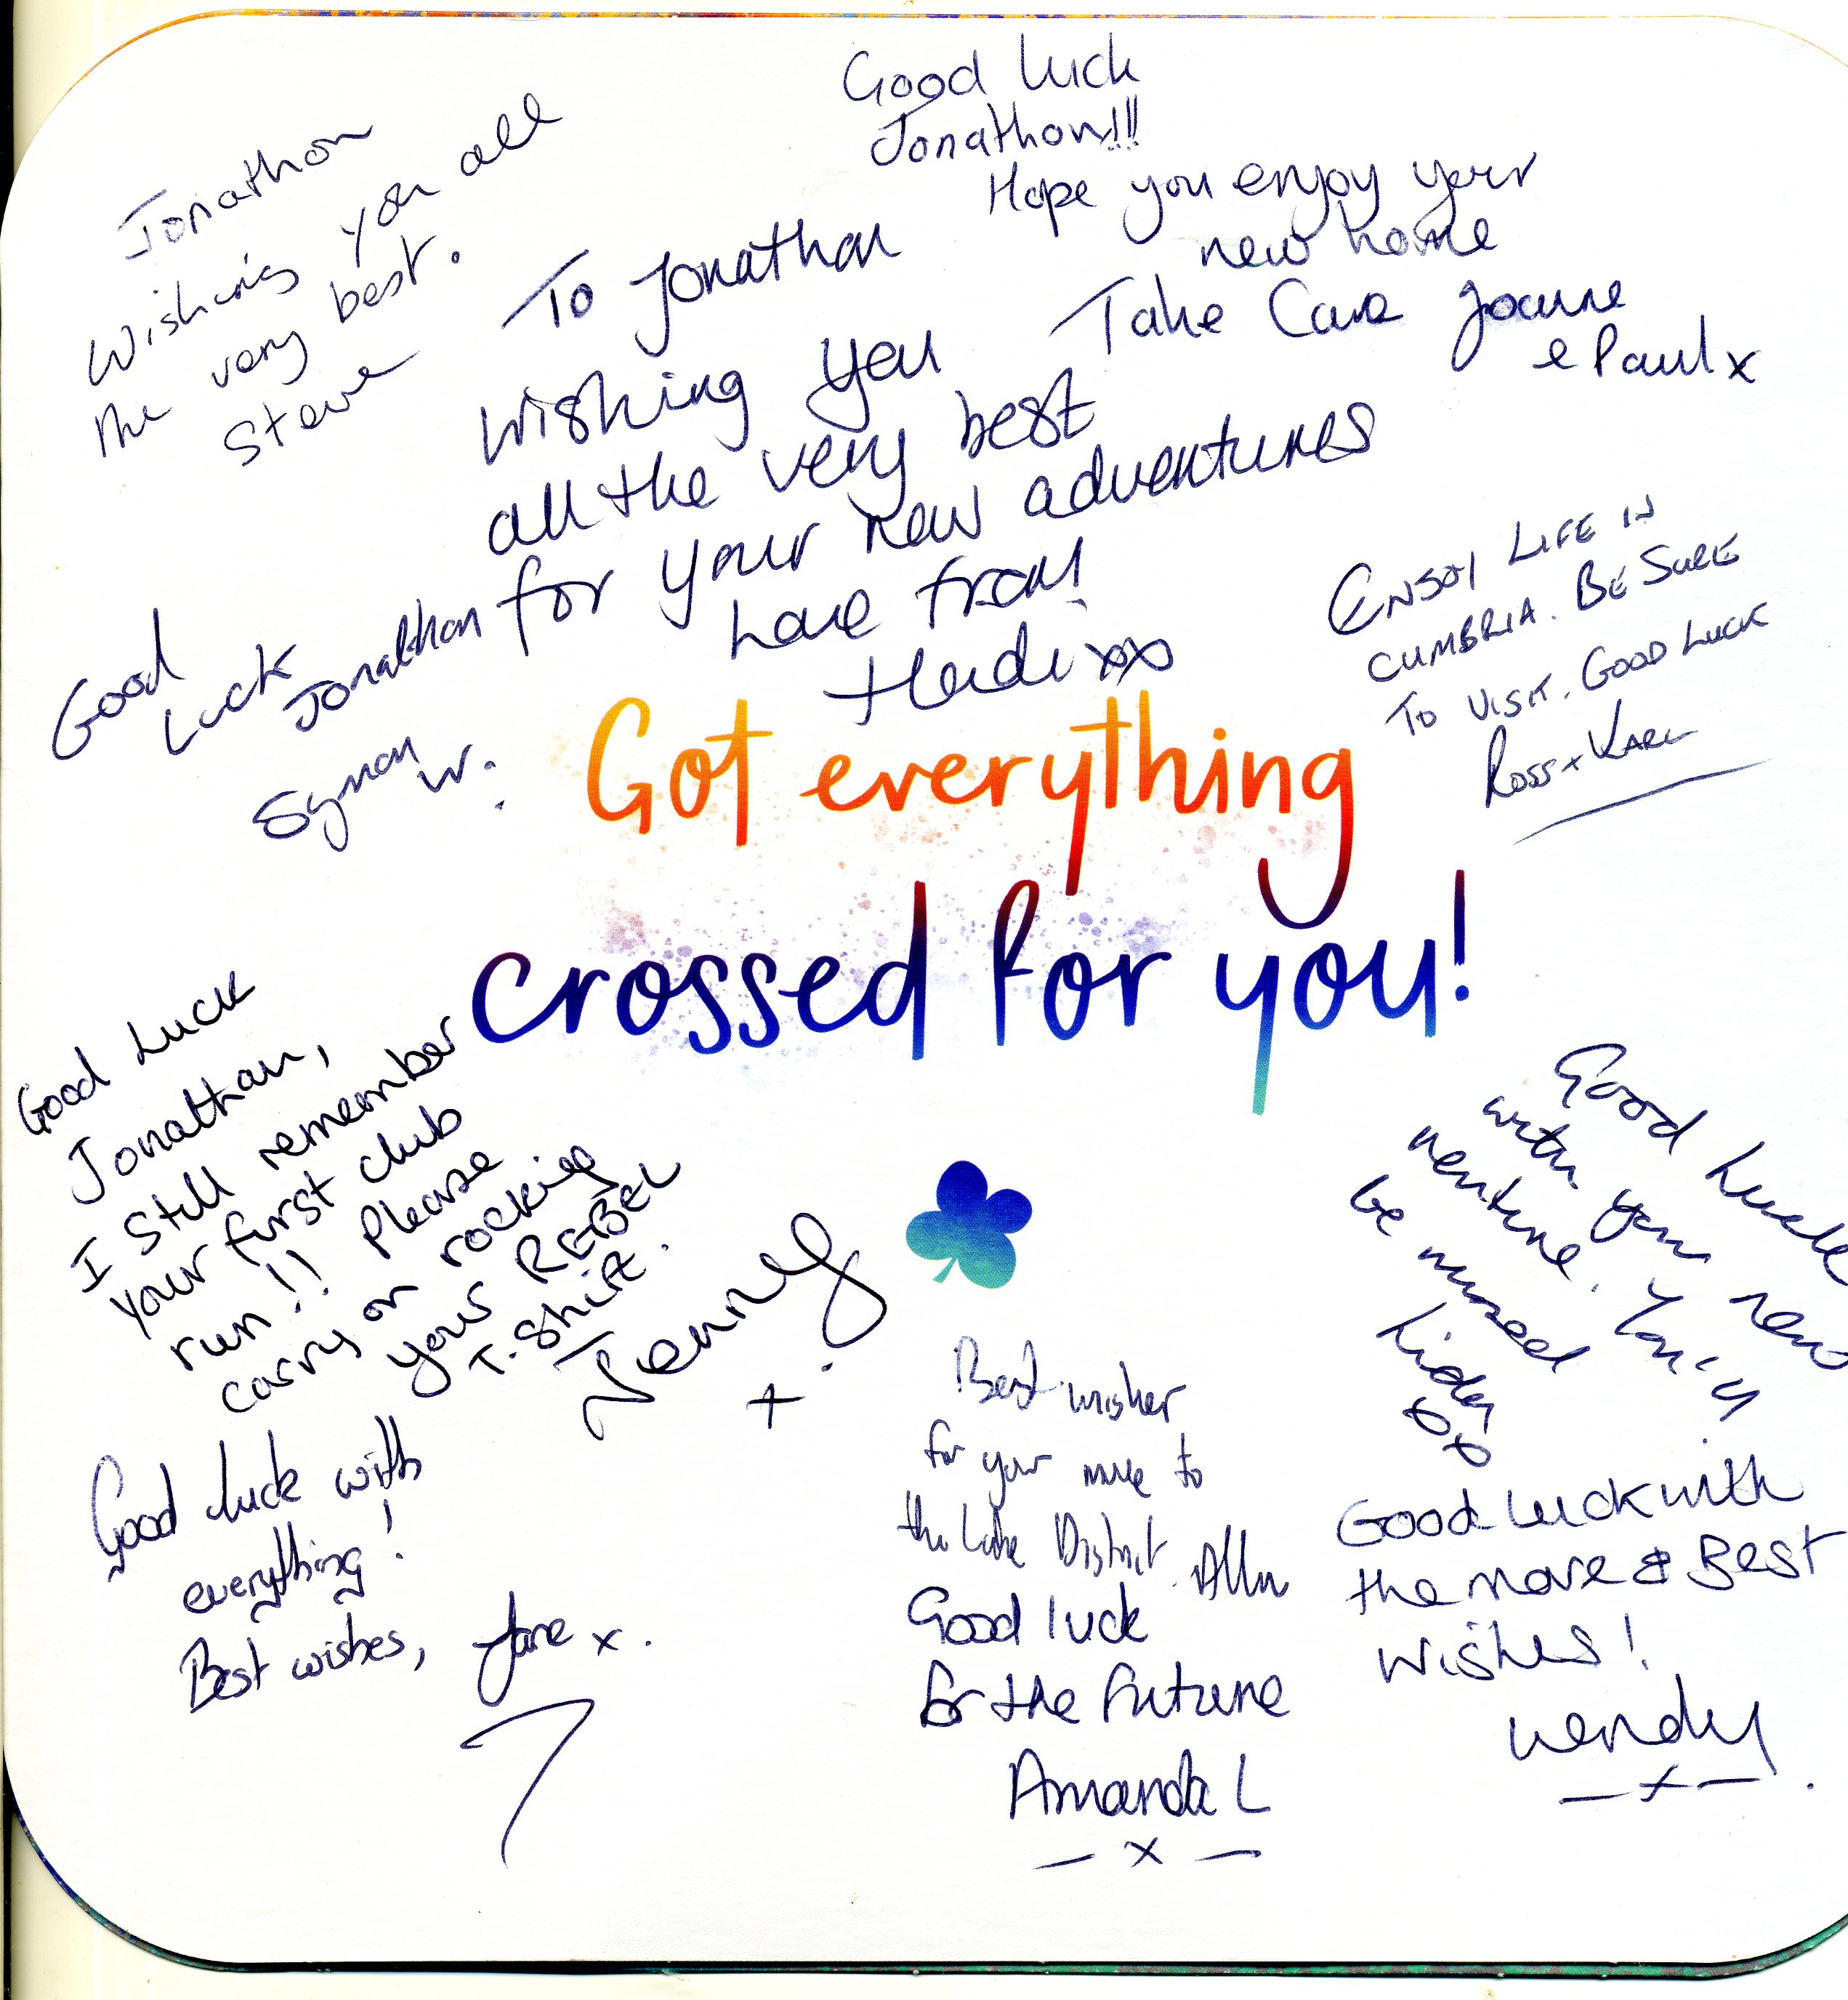 Jonathon
Wishing you all
the very best.
Steve
Good Luck
Jonathon!!!
Hope you enjoy your
new home
Take Care Joanne
& Paul x
To Jonathan
Wishing you
all the very best
for your new adventures
Love from
Heidi xox
Good
Luck
Jonathan
Symon
W.
ENJOY LIFE IN
CUMBRIA. BE SURE
TO VISIT. GOOD LUCK
ROSS + KARL
Got everything
crossed for you!
Good Luck
Jonathan,
I Still remember
your first club
run!! Please
carry on rocking
your REBEL
T-Shirt.
Jenny
x
Good luck with
everything!
Best wishes, Jane x.
Best wishes
for your move to
the Lake District.
Good luck
for the future
Amanda L
x
Good Luck
with your new
venture. You'll
be missed
Good Luck with
the move & Best
Wishes!
Wendy
x